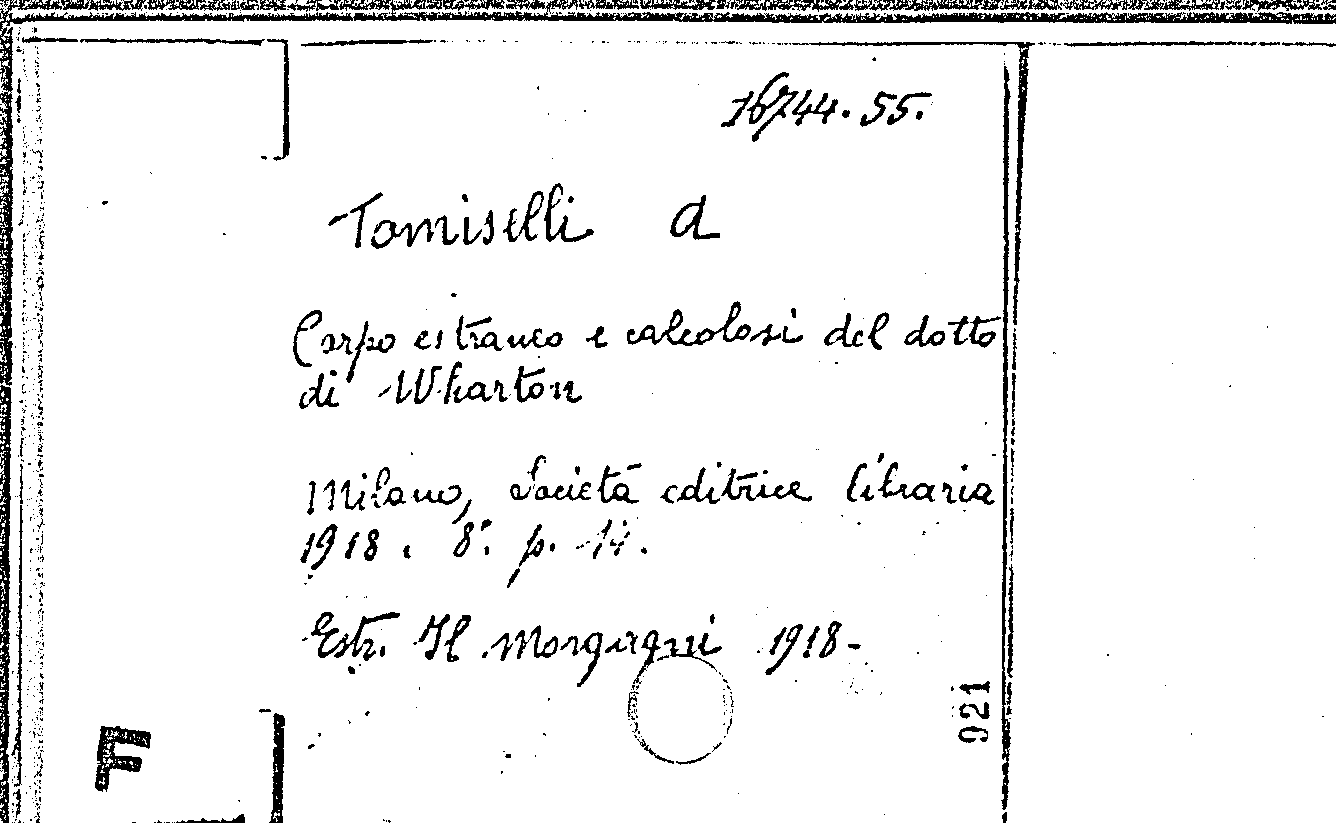 16744.55.
Tomiselli A
Corpo estraneo e calcolosi del dotto
di Wharton
Milano, Società editrice libraria
1918. 8°. p. 14.
Estr. Il Morgagni 1918-
921
F